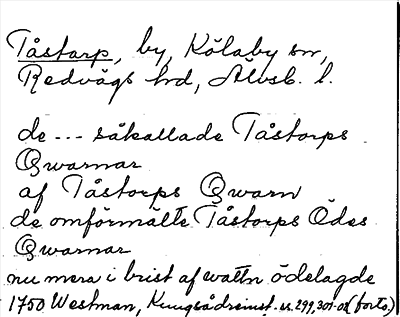 Tåstarp, by, Kölaby sn,
Redvägs hd, Älvsb. l.
de --- såkallade Tåstorps
Qwarnar
af Tåstorps Qwarn
de omförmälte Tåstorps Ödes
Qwarnar
nu mera i brist af wattn ödelagde
1750 Westman, Kungsådreinst. s. 299, 301-02 (forts.)